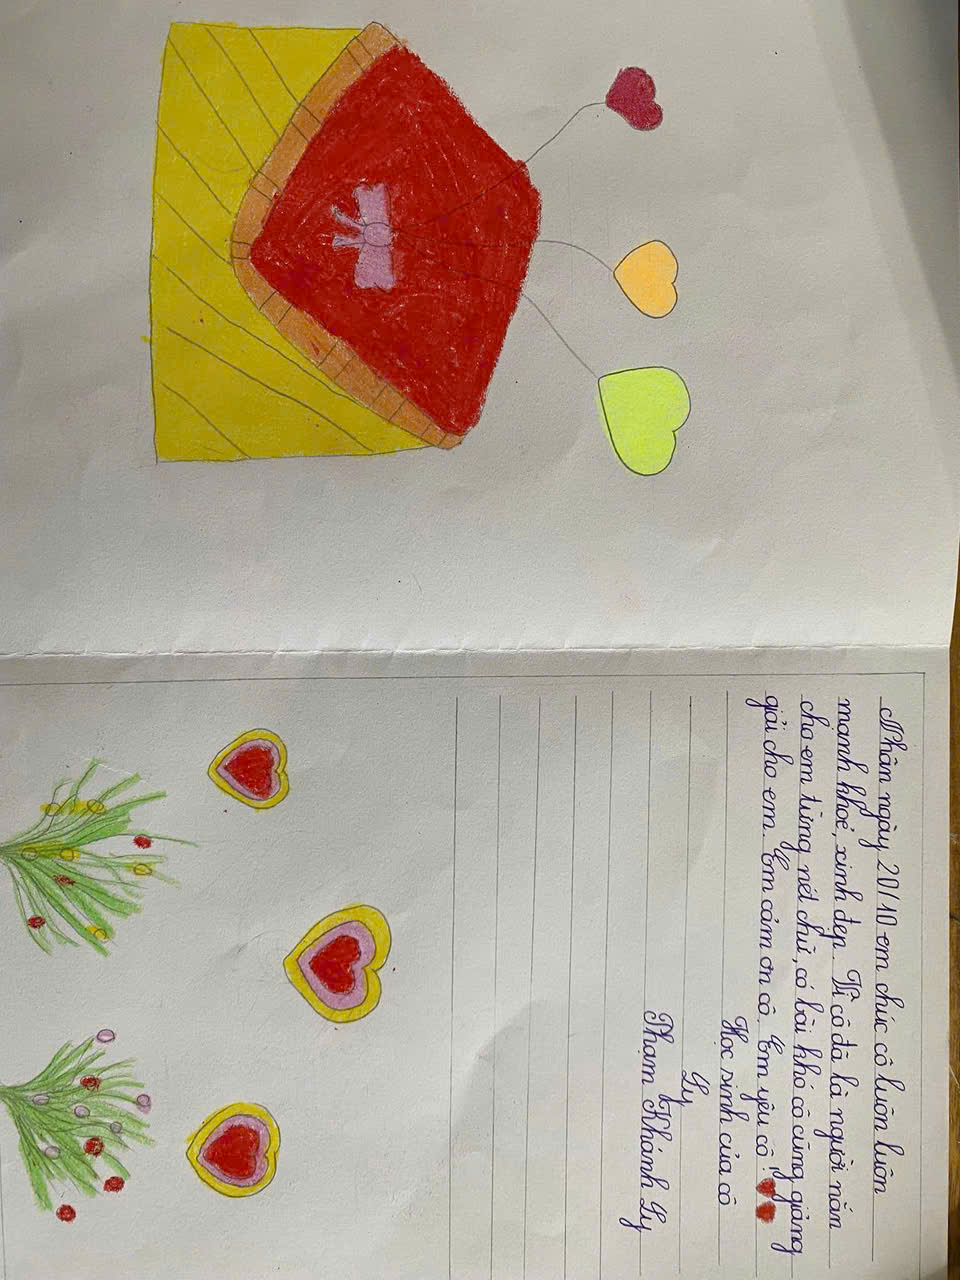 Nhân ngày 20/10 em chúc cô luôn luôn
mạnh khoẻ, xinh đẹp. Vì cô đã là người nắn
cho em từng nét chữ, có bài khó cô cũng giảng
giải cho em. Em cảm ơn cô. Em yêu cô!
Học sinh của cô
Ly
Phạm Khánh Ly